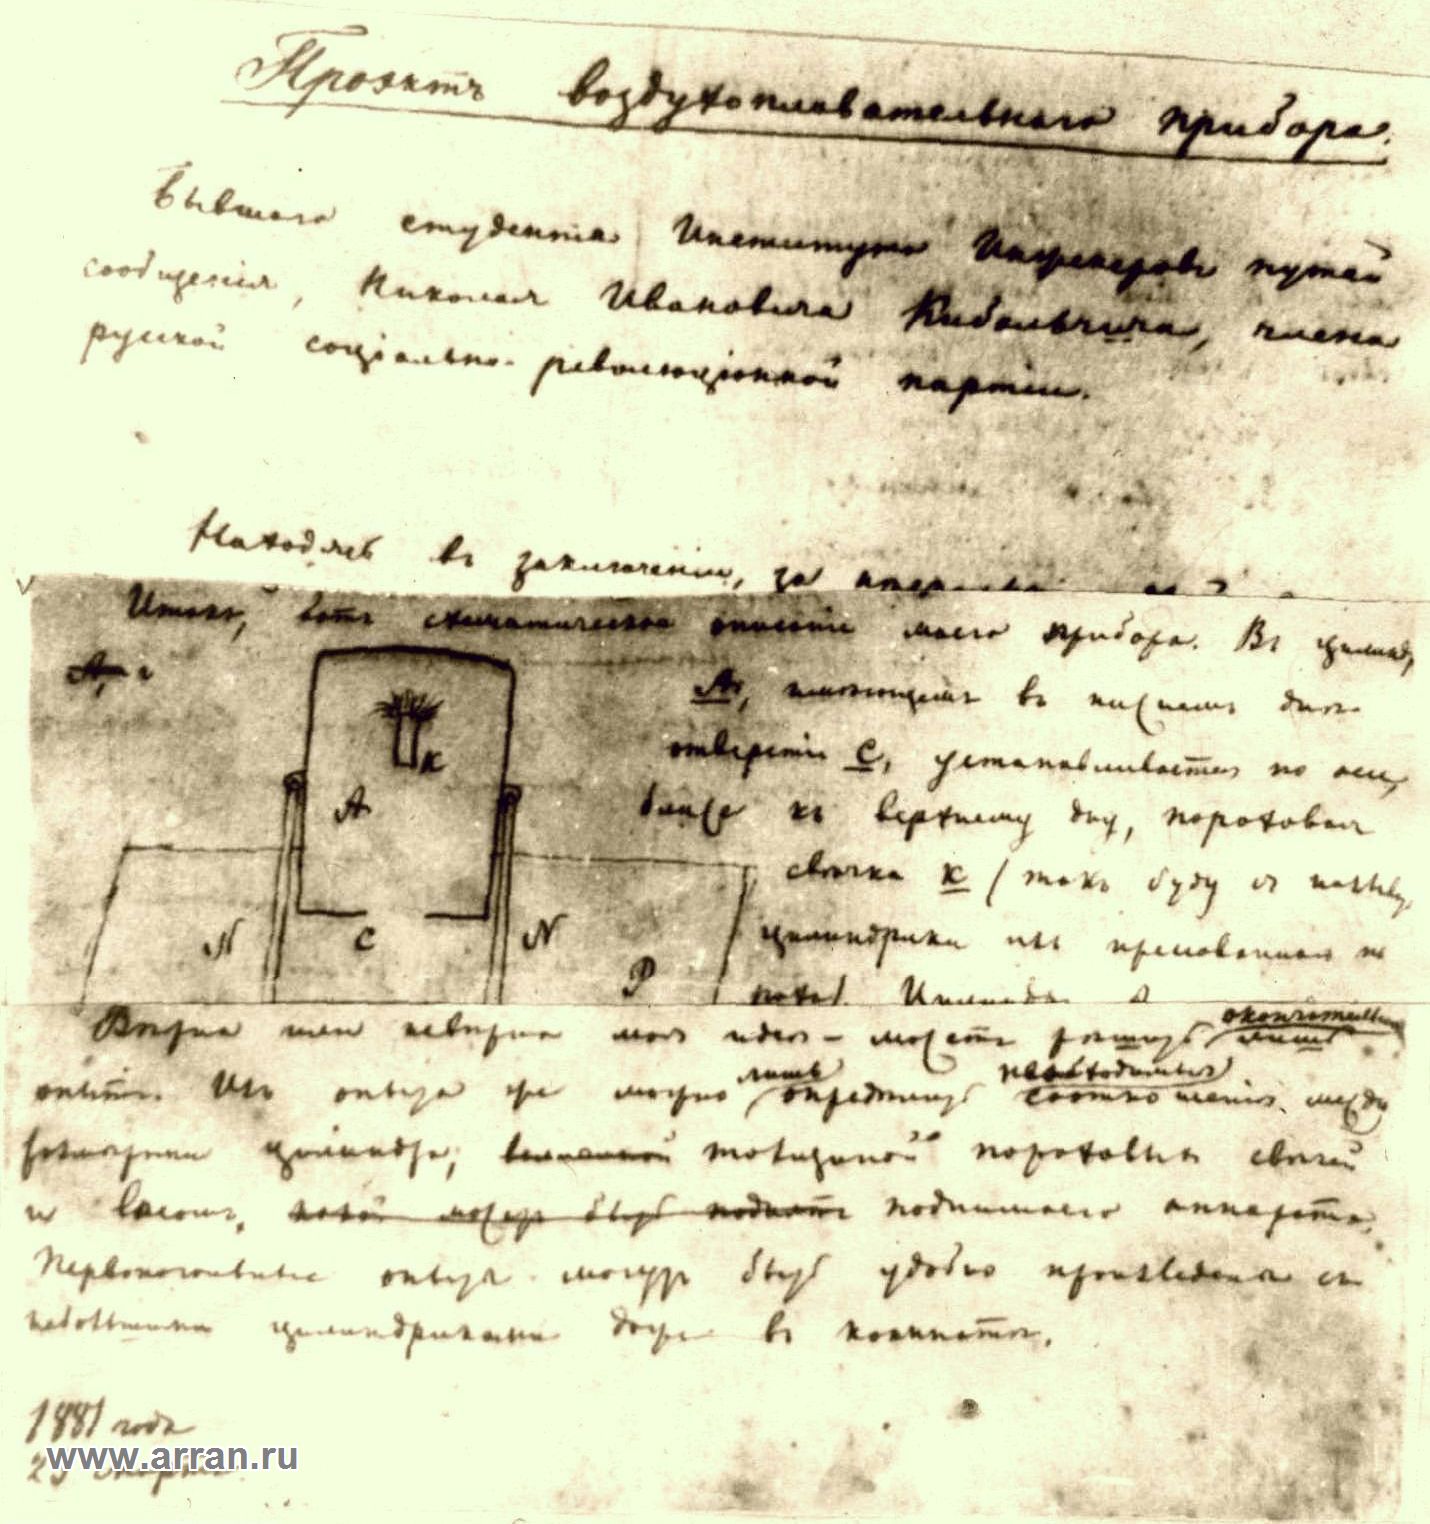 Проэктъ воздухоплавательнаго прибора.
бывшаго студента Института Инженеровъ путей
сообщенія, Николая Ивановича Кибальчича, члена
русской соціально-революціонной партіи.
Находясь въ заключеніи, за
Итакъ, вотъ схематическое описаніе моего прибора. Въ цилиндр
A
A, имѣющемъ въ нижнемъ днѣ
отверстіе C, устанавливается по оси,
ближе къ верхнему дну, пороховая
K
A
свѣчка K (такъ буду я называ
N C N
цилиндрики изъ прессованнаго по
P
роха). Цилиндръ
Вѣрна или невѣрна моя идея – можетъ рѣшить окончательно лишь
опытъ. Изъ опыта же можно лишь опредѣлить необходимыя соотношенія между
размѣрами цилиндра, толщиной пороховыхъ свѣчей
и вѣсомъ, какой можетъ быть поднятъ поднимаемаго аппарата.
Первоначальные опыты могутъ быть удобно произведены съ
небольшими цилиндриками даже въ комнатѣ.
1881 года
23 Марта.
www.arran.ru